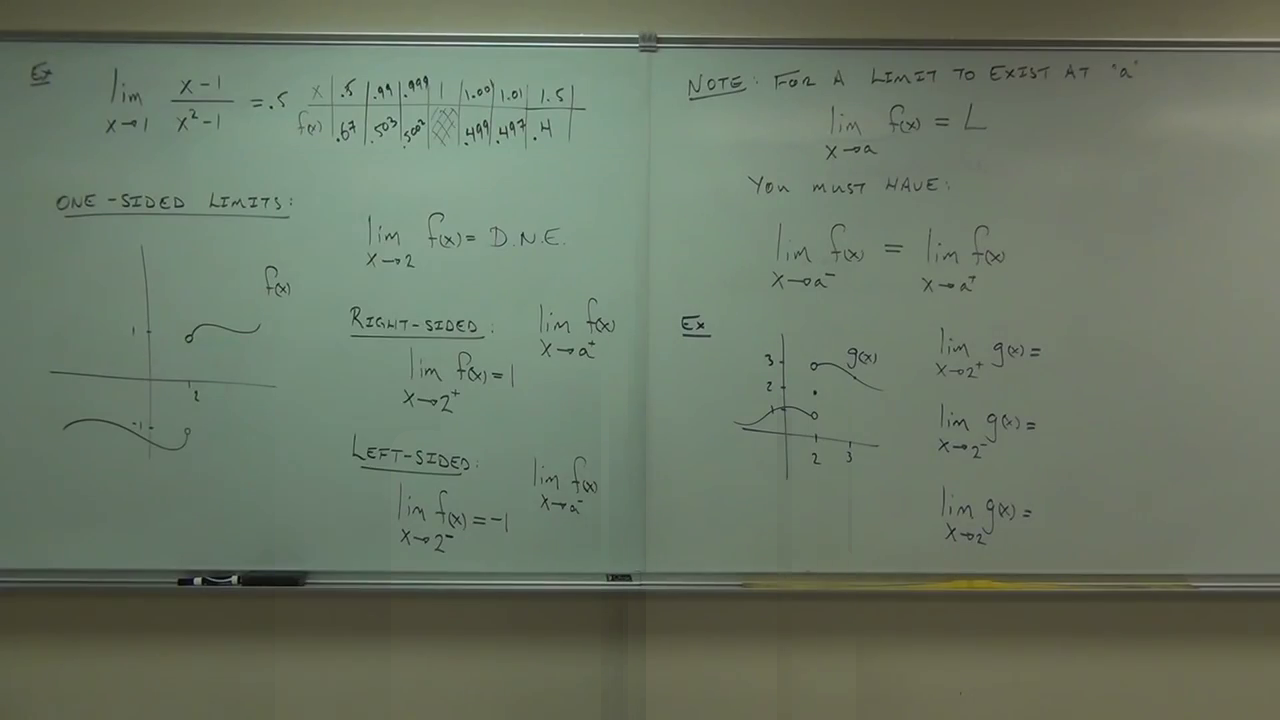 Ex
lim x→1 (x-1)/(x²-1) = .5
x | .5 | .99 | .999 | 1 | 1.00 | 1.01 | 1.5
f(x) | .67 | .503 | .5002 | | .499 | .497 | .4
ONE-SIDED LIMITS:
f(x)
1
2
-1
lim x→2 f(x) = D.N.E.
RIGHT-SIDED:
lim x→a⁺ f(x)
lim x→2⁺ f(x) = 1
LEFT-SIDED:
lim x→a⁻ f(x)
lim x→2⁻ f(x) = -1
NOTE: FOR A LIMIT TO EXIST AT "a"
lim x→a f(x) = L
YOU MUST HAVE:
lim x→a⁻ f(x) = lim x→a⁺ f(x)
Ex
g(x)
3
2
1
2 3
lim x→2⁺ g(x) =
lim x→2⁻ g(x) =
lim x→2 g(x) =